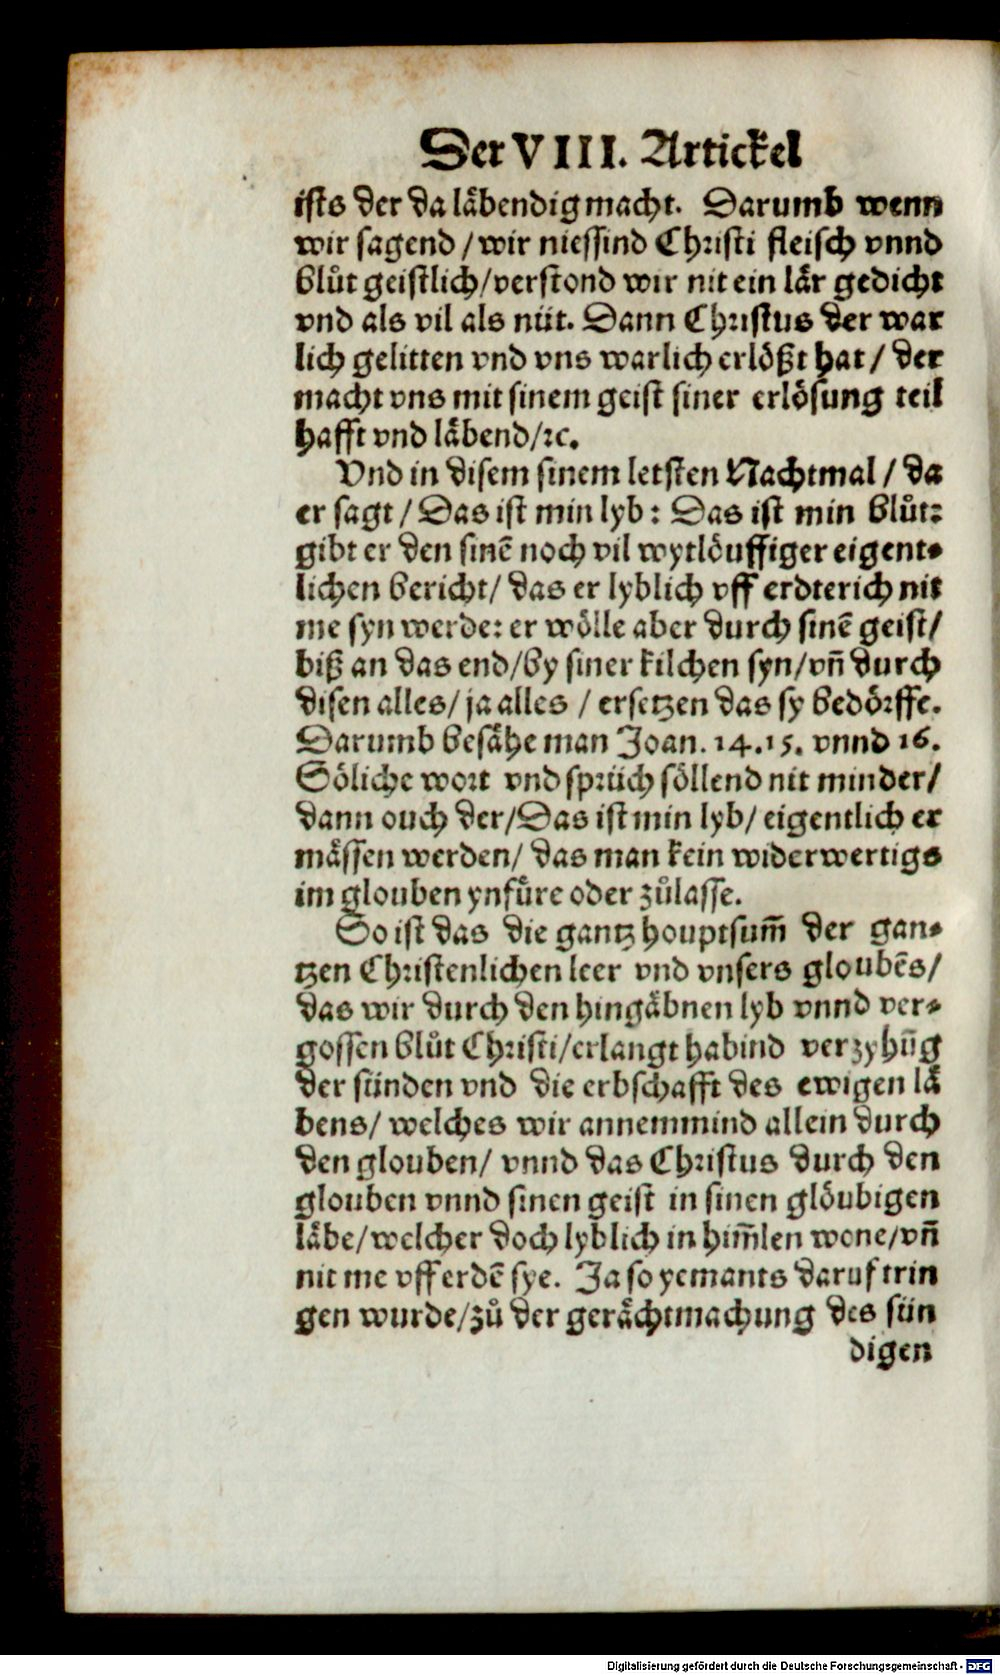 Der VIII. Artickel
ists der da läbendig macht. Darumb wenn
wir sagend / wir niessind Christi fleisch vnnd
blůt geistlich/verstond wir nit ein lär gedicht
vnd als vil als nüt. Dann Christus der war
lich gelitten vnd vns warlich erlößt hat / der
macht vns mit sinem geist siner erlösung teil
hafft vnd läbend/ꝛc.
Vnd in disem sinem letsten Nachtmal / da
er sagt / Das ist min lyb : Das ist min blůt:
gibt er den sinē noch vil wytlöuffiger eigent-
lichen bericht/ das er lyblich vff erdterich nit
me syn werde: er wölle aber durch sinē geist/
biß an das end/by siner kilchen syn/vñ durch
disen alles/ ja alles / ersetzen das sy bedörffe.
Darumb besähe man Joan. 14.15. vnnd 16.
Söliche wort vnd sprüch söllend nit minder/
dann ouch der/Das ist min lyb/ eigentlich er
mässen werden/ das man kein widerwertigs
im glouben ynfüre oder zůlasse.
So ist das die gantz houptsum̄ der gan-
tzen Christenlichen leer vnd vnsers gloubēs/
das wir durch den hingäbnen lyb vnnd ver-
gossen blůt Christi/erlangt habind verzyhūg
der sünden vnd die erbschafft des ewigen lä
bens/ welches wir annemmind allein durch
den glouben/ vnnd das Christus durch den
glouben vnnd sinen geist in sinen glöubigen
läbe/welcher doch lyblich in him̄len wone/vñ
nit me vff erdē sye. Ja so yemants daruf trin
gen wurde/zů der gerächtmachung des sün
digen
Digitalisierung gefördert durch die Deutsche Forschungsgemeinschaft - DFG